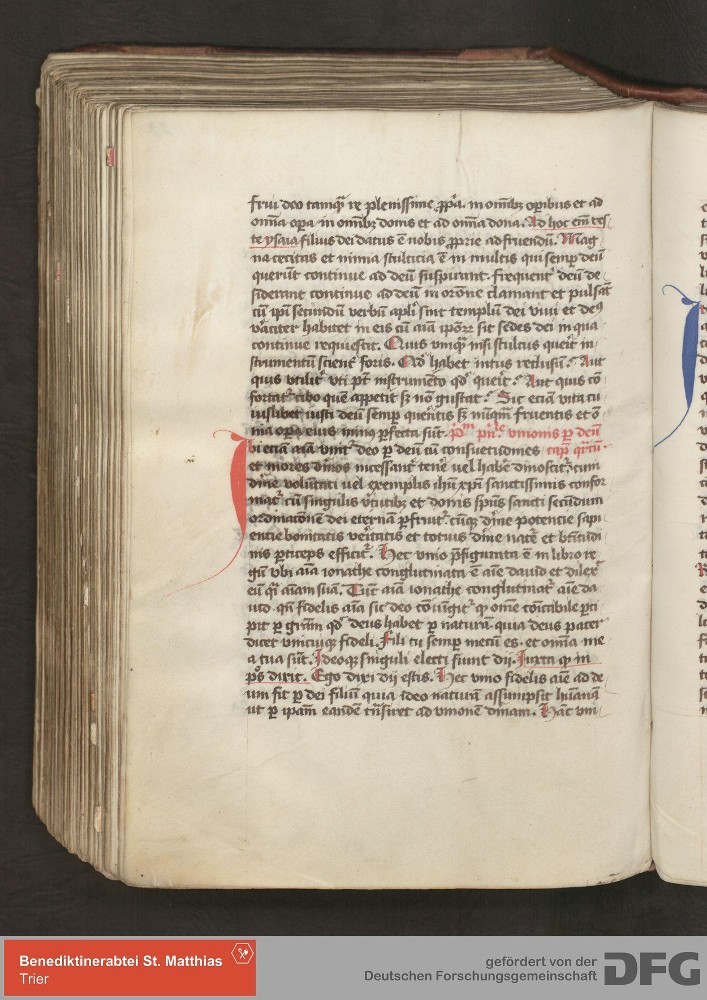 frui deo tamqͣ re plenissime ꝓpͥa. in omībꝫ oꝑibus et ad
om̄ia oꝑa in omībꝫ donis et ad om̄ia dona. Ad hoc em̄ tes
te ysaia filius dei datus ē nobis ꝓprie ad fruendū. Mag
na cecitas et nimia stulticia ē in multis qui semꝑ deū
querūt continue ad deū suspirant. frequent̾ deū de
siderant continue ad deū in orōne clamant et pulsāt
cū ip̄i scd̄um verbū apl̓i sint templū dei viui et deꝰ
v̾aciter habitet in eis cū aīa ip̄oꝝ sit sedes dei in qua
continue requiescit. Quis vmqͣ nisi stultus querit in
strumentū scient̾ foris. Qd̓ habet intus reclusū. Aut
quis vtilit̾ vti pt̄ instrumēto qd̓ querit. Aut quis cō
fortat̾ cibo quē appetit sꝫ nō gustat. Sic etiā vita cu
iuslibet iusti deū semꝑ querētis sꝫ nūqͣm fruentis et o
nia oꝑa eius minꝰ ꝑfecta sūt. vnionis ꝑ deū
bi etiā aīa vnit̾ deo ꝑ deū cū consuetudines capͫ qͣrtū.
et mores diuīos incessant̾ tenē uel habē dinoscit̾. cum
diuīe volūtati uel exemplis ihū xp̄i sanctissimis confor
mat̾ cū singulis v̾tutibꝫ et donis sp̄us sancti secūdum
ordinationē dei eternā ꝑfruit̾. cūqꝫ diuīe potencie sapi
entie bonitatis veritatis et totius diuīe natē et btitudi
nis ꝑticeps efficit̾. Hec vnio p̄figurata ē in libro re
gū vbi aīa ionathe conglutinata ē aīe dauid et dilex̄
eū qͣ aīam suā. Tūc aīa ionathe conglutinat̾ aīe da
uid qn̄ fidelis aīa sic deo cōiūgit̾ ꝙ om̄e cōicibile ꝑci
pit ꝑ gr̄am qd̓ deus habet ꝑ naturā quia deus pater
dicet vnicuiqꝫ fideli. Fili tu semꝑ mecū es. et om̄ia me
a tua sūt. Ideoqꝫ singuli electi fiunt dij. Iuxta ꝙ in
pˢo dixit. Ego dixi dij estis. Hec vnio fidelis aīe ad de
um fit ꝑ dei filiū quia ideo naturā assumpsit hūanā
ut ꝑ ip̄am eandē trāsiret ad vnionē diuīam. Hāc vni
Benediktinerabtei St. Matthias
Trier
gefördert von der
Deutschen Forschungsgemeinschaft
DFG